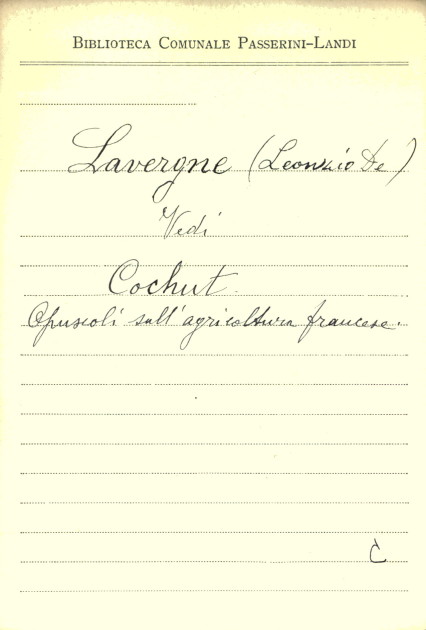 BIBLIOTECA COMUNALE PASSERINI-LANDI
Lavergne (Leonzio De)
Vedi
Cochut.
Opuscoli sull'agricoltura francese.
C